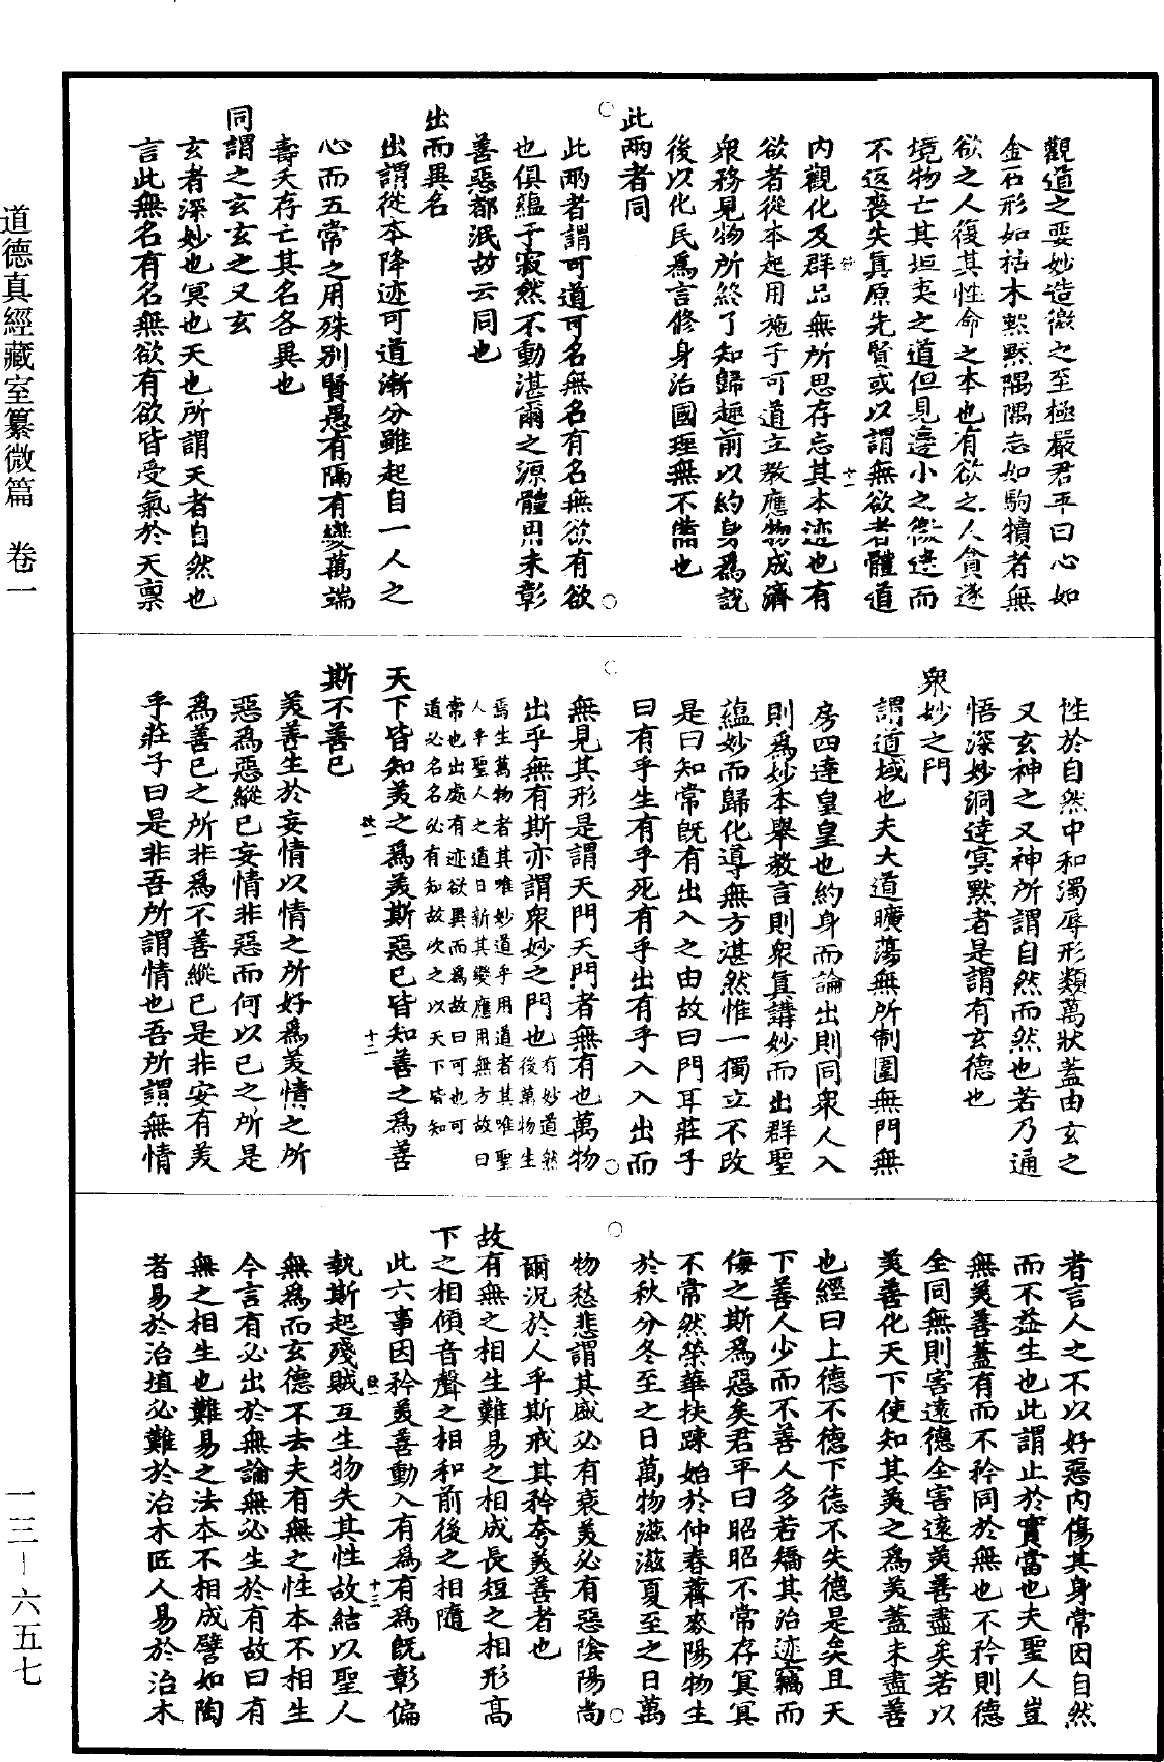 道德真經藏室纂微篇　卷一
一三—六五七
觀道之要妙造微之至極嚴君平曰心如
金石形如枯木默默隅隅忘如駒犢者無
欲之人復其性命之本也有欲之人貪逐
境物亡其坦夷之道但見邊小之徼迷而
不返喪失真原先賢或以謂無欲者體道
內觀化及群品無所思存忘其本迹也有
欲者從本起用施于可道立教應物成濟
衆務見物所終了知歸趣前以約身為說
後以化民為言修身治國理無不備也
此兩者同
此兩者謂可道可名無名有名無欲有欲
也俱蘊于寂然不動湛爾之源體用未彰
善惡都泯故云同也
出而異名
出謂從本降迹可道漸分雖起自一人之
心而五常之用殊別賢愚有隔有變萬端
壽夭存亡其名各異也
同謂之玄玄之又玄
玄者深妙也冥也天也所謂天者自然也
言此無名有名無欲有欲皆受氣於天稟
性於自然中和濁辱形類萬狀蓋由玄之
又玄神之又神所謂自然而然也若乃通
悟深妙洞達冥默者是謂有玄德也
衆妙之門
謂道域也夫大道曠蕩無所制圍無門無
房四達皇皇也約身而論出則同衆人入
則為妙本舉教言則衆真講妙而出群聖
蘊妙而歸化導無方湛然惟一獨立不改
是曰知常既有出入之由故曰門耳莊子
曰有乎生有乎死有乎出有乎入入出而
無見其形是謂天門天門者無有也萬物
出乎無有斯亦謂衆妙之門也有妙道然後萬物生
焉生萬物者其唯妙道乎用道者其唯聖
人乎聖人之道日新其變應用無方故曰
常也出處有迹欲異而為故曰可也可
道必名名必有知故次之以天下皆知
天下皆知美之為美斯惡已皆知善之為善
斯不善已
美善生於妄情以情之所好為美情之所
惡為惡縱已妄情非惡而何以已之所是
為善已之所非為不善縱已是非安有美
乎莊子曰是非吾所謂情也吾所謂無情
者言人之不以好惡內傷其身常因自然
而不益生也此謂止於實當也夫聖人豈
無美善蓋有而不矜同於無也不矜則德
全同無則害遠德全害遠美善盡矣若以
美善化天下使知其美之為美蓋未盡善
也經曰上德不德下德不失德是矣且天
下善人少而不善人多若矯其治迹竊而
侮之斯為惡矣君平曰昭昭不常存冥冥
不常然榮華扶踈始於仲春薺麥陽物生
於秋分冬至之日萬物滋滋夏至之日萬
物愁悲謂其盛必有衰美必有惡陰陽尚
爾況於人乎斯戒其矜夸美善者也
故有無之相生難易之相成長短之相形高
下之相傾音聲之相和前後之相隨
此六事因矜美善動入有為有為既彰偏
執斯起殘賊互生物失其性故結以聖人
無為而玄德不去夫有無之性本不相生
今言有必出於無論無必生於有故曰有
無之相生也難易之法本不相成譬如陶
者易於治埴必難於治木匠人易於治木